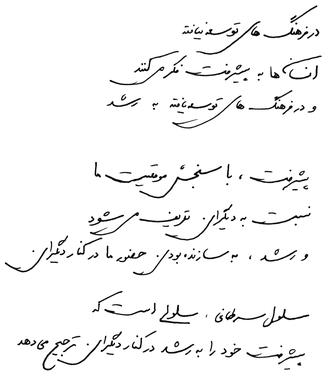 در فرهنگ های توسعه نیافته
انسان ها به پیشرفت فکر می کنند
و در فرهنگ های توسعه یافته به رشد
پیشرفت ، با سنجش موقعیت ما
نسبت به دیگران تعریف می شود
و رشد ، به سازنده بودن حضور ما در کنار دیگران.
سلول سرطانی ، سلولی است که
پیشرفت خود را به رشد در کنار دیگران ترجیح می دهد